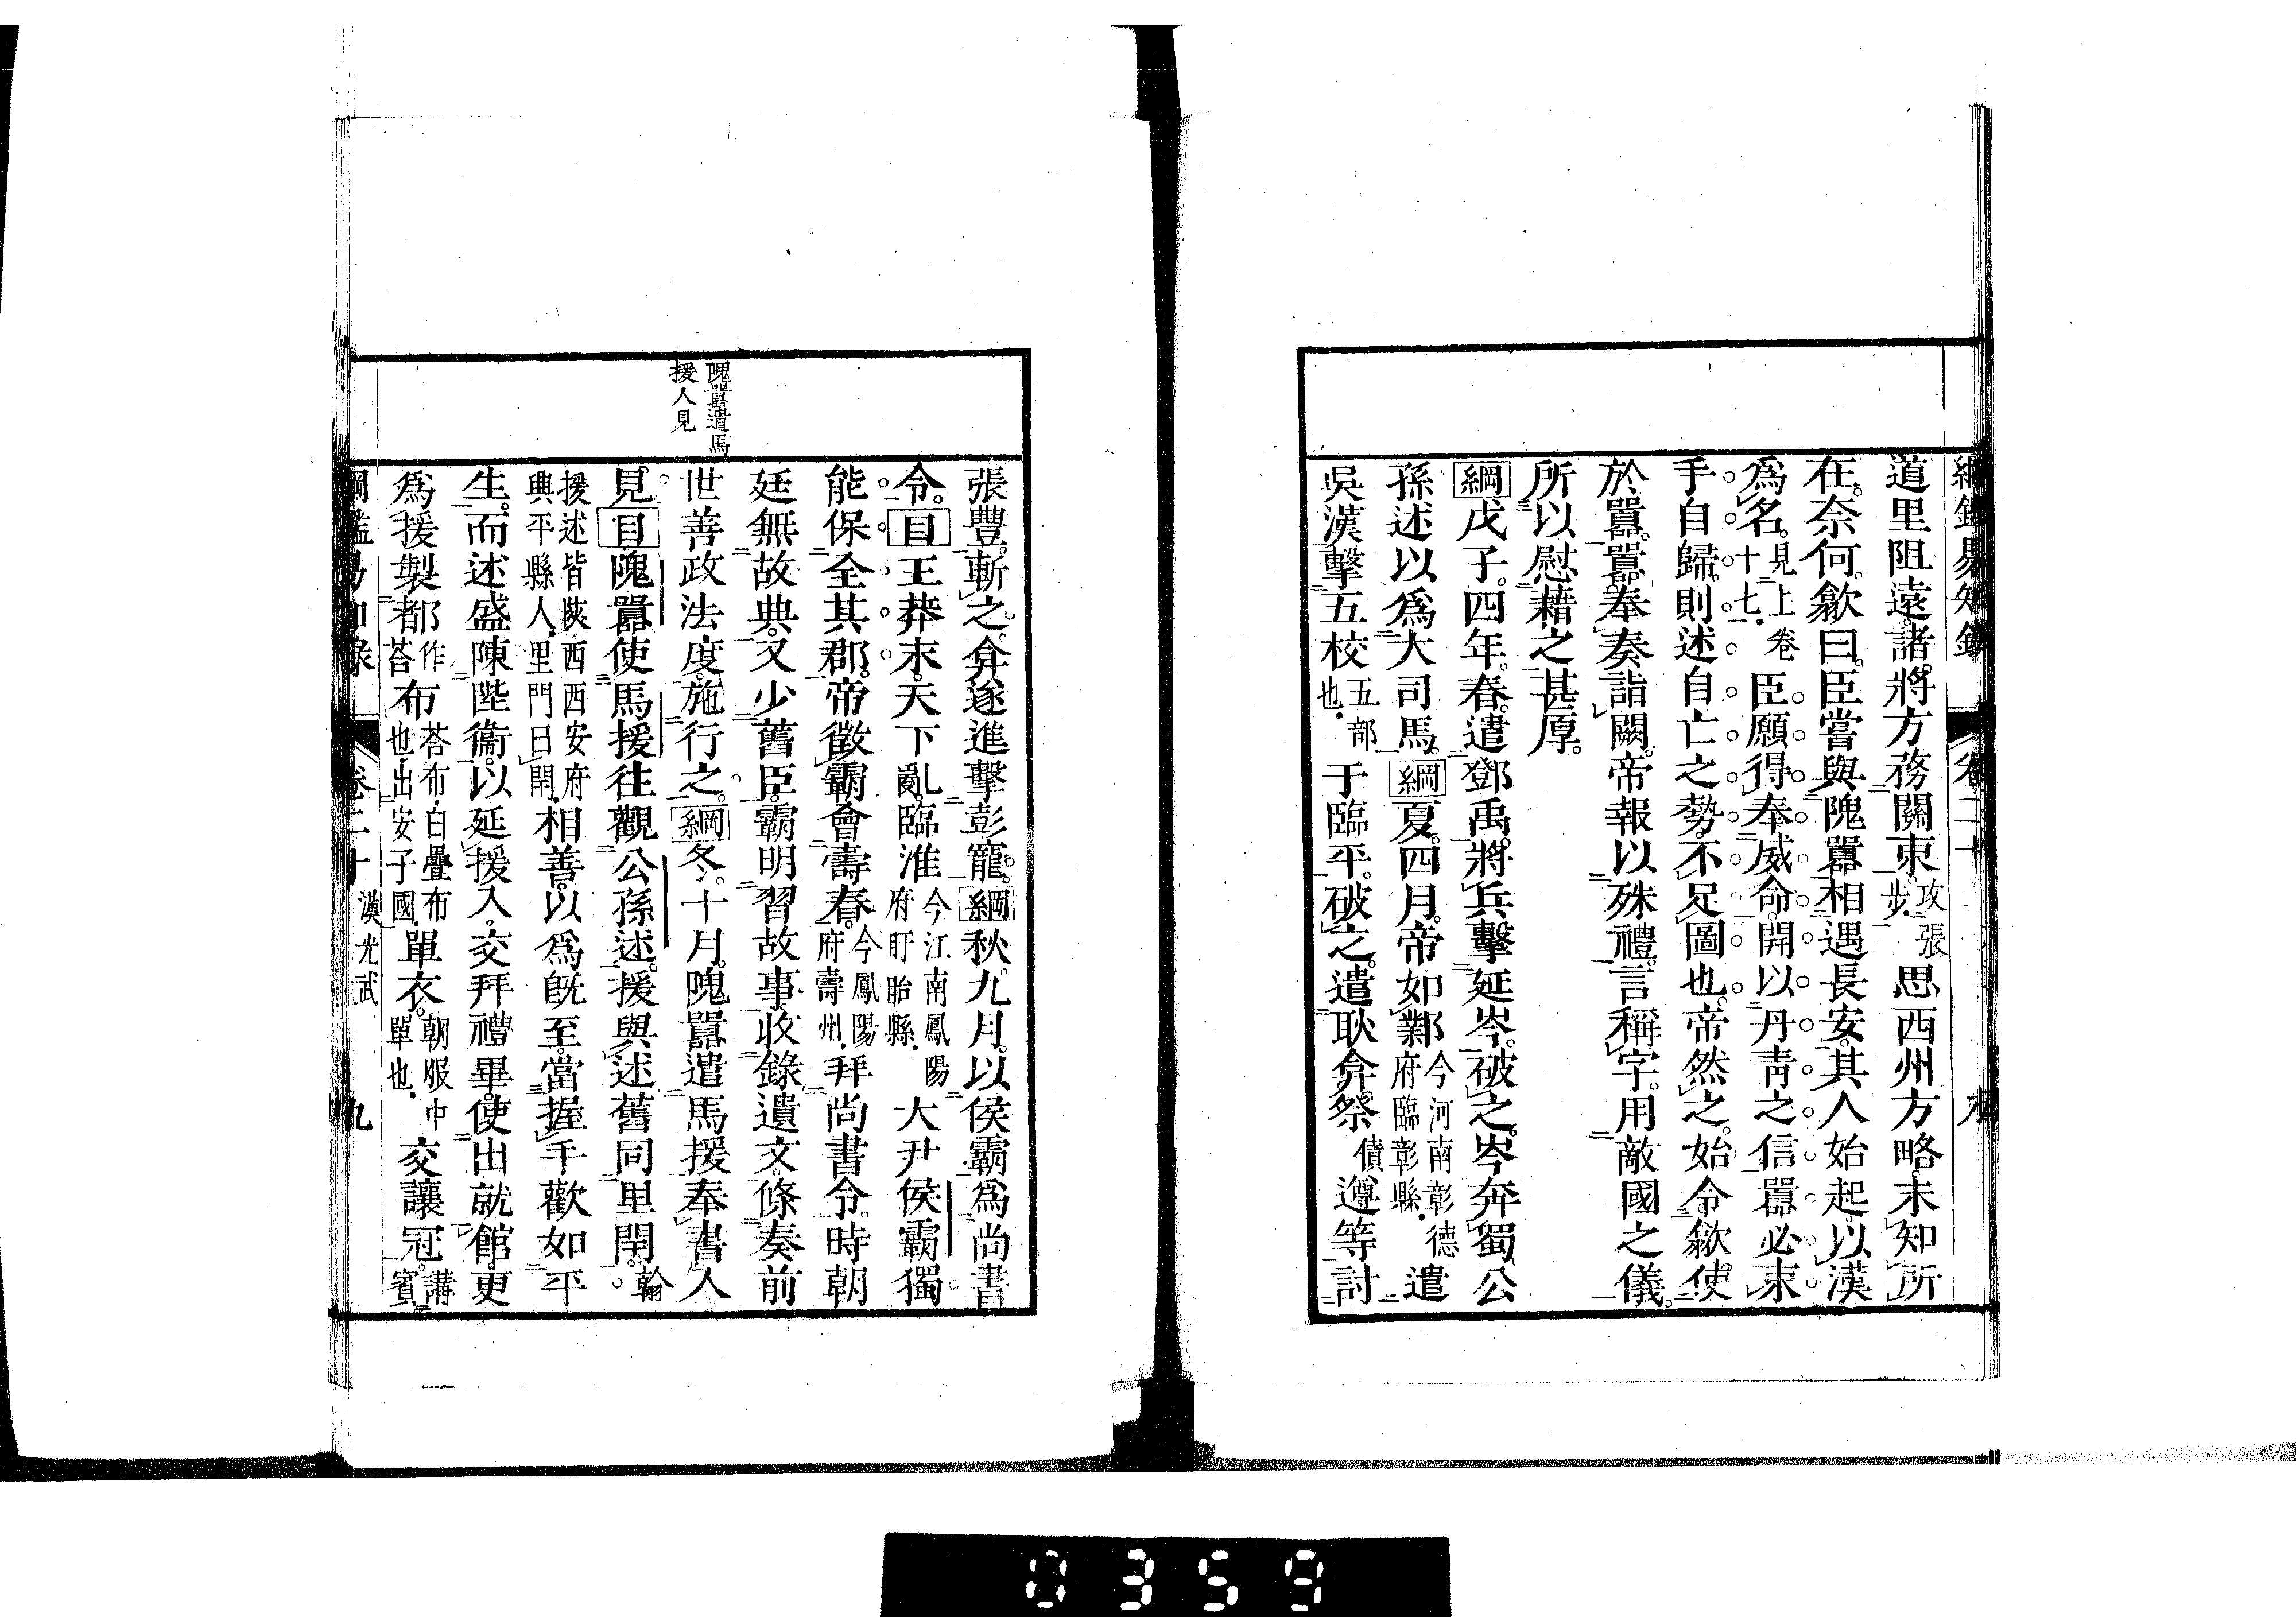 綱鑑易知錄 卷二十 九
道里阻遠。諸將方務關東。攻張步。思西州方略。未知所
在。奈何。歙曰。臣嘗與隗囂相遇長安。其人始起。以漢
爲名。見上卷十七。臣願得奉威命。開以丹青之信。囂必束
手自歸。則述自亡之勢。不足圖也。帝然之。始令歙使
於囂。囂奉奏詣闕。帝報以殊禮。言稱字。用敵國之儀。
所以慰藉之甚厚。
綱戊子。四年。春。遣鄧禹。將兵擊延岑。破之。岑奔蜀。公
孫述以爲大司馬。綱夏。四月。帝如鄴。今河南彰德府臨彰縣。遣
吳漢擊五校五部也。于臨平。破之。遣耿弇。祭債遵等討
張豐。斬之。弇遂進擊彭寵。綱秋。九月。以侯霸爲尚書
令。目王莽末。天下亂。臨淮今江南鳳陽府盱眙縣。大尹侯霸獨
能保全其郡。帝徵霸會壽春。今鳳陽府壽州。拜尚書令。時朝
廷無故典。又少舊臣。霸明習故事。收錄遺文。條奏前
世善政法度。施行之。綱冬。十月。隗囂遣馬援奉書入
隗囂遣馬
援入見
見。目隗囂使馬援往觀公孫述。援與述舊同里閈。翰
援述皆陝西西安府興平縣人。里門曰閈。相善。以爲旣至。當握手歡如平
生。而述盛陳陛衞。以延援入。交拜禮畢。使出就館。更
爲援製都作荅布荅布。白疊布也。出安子國。單衣。朝服中單也。交讓冠。講賓
綱鑑易知錄 卷二十 漢光武 九
0359